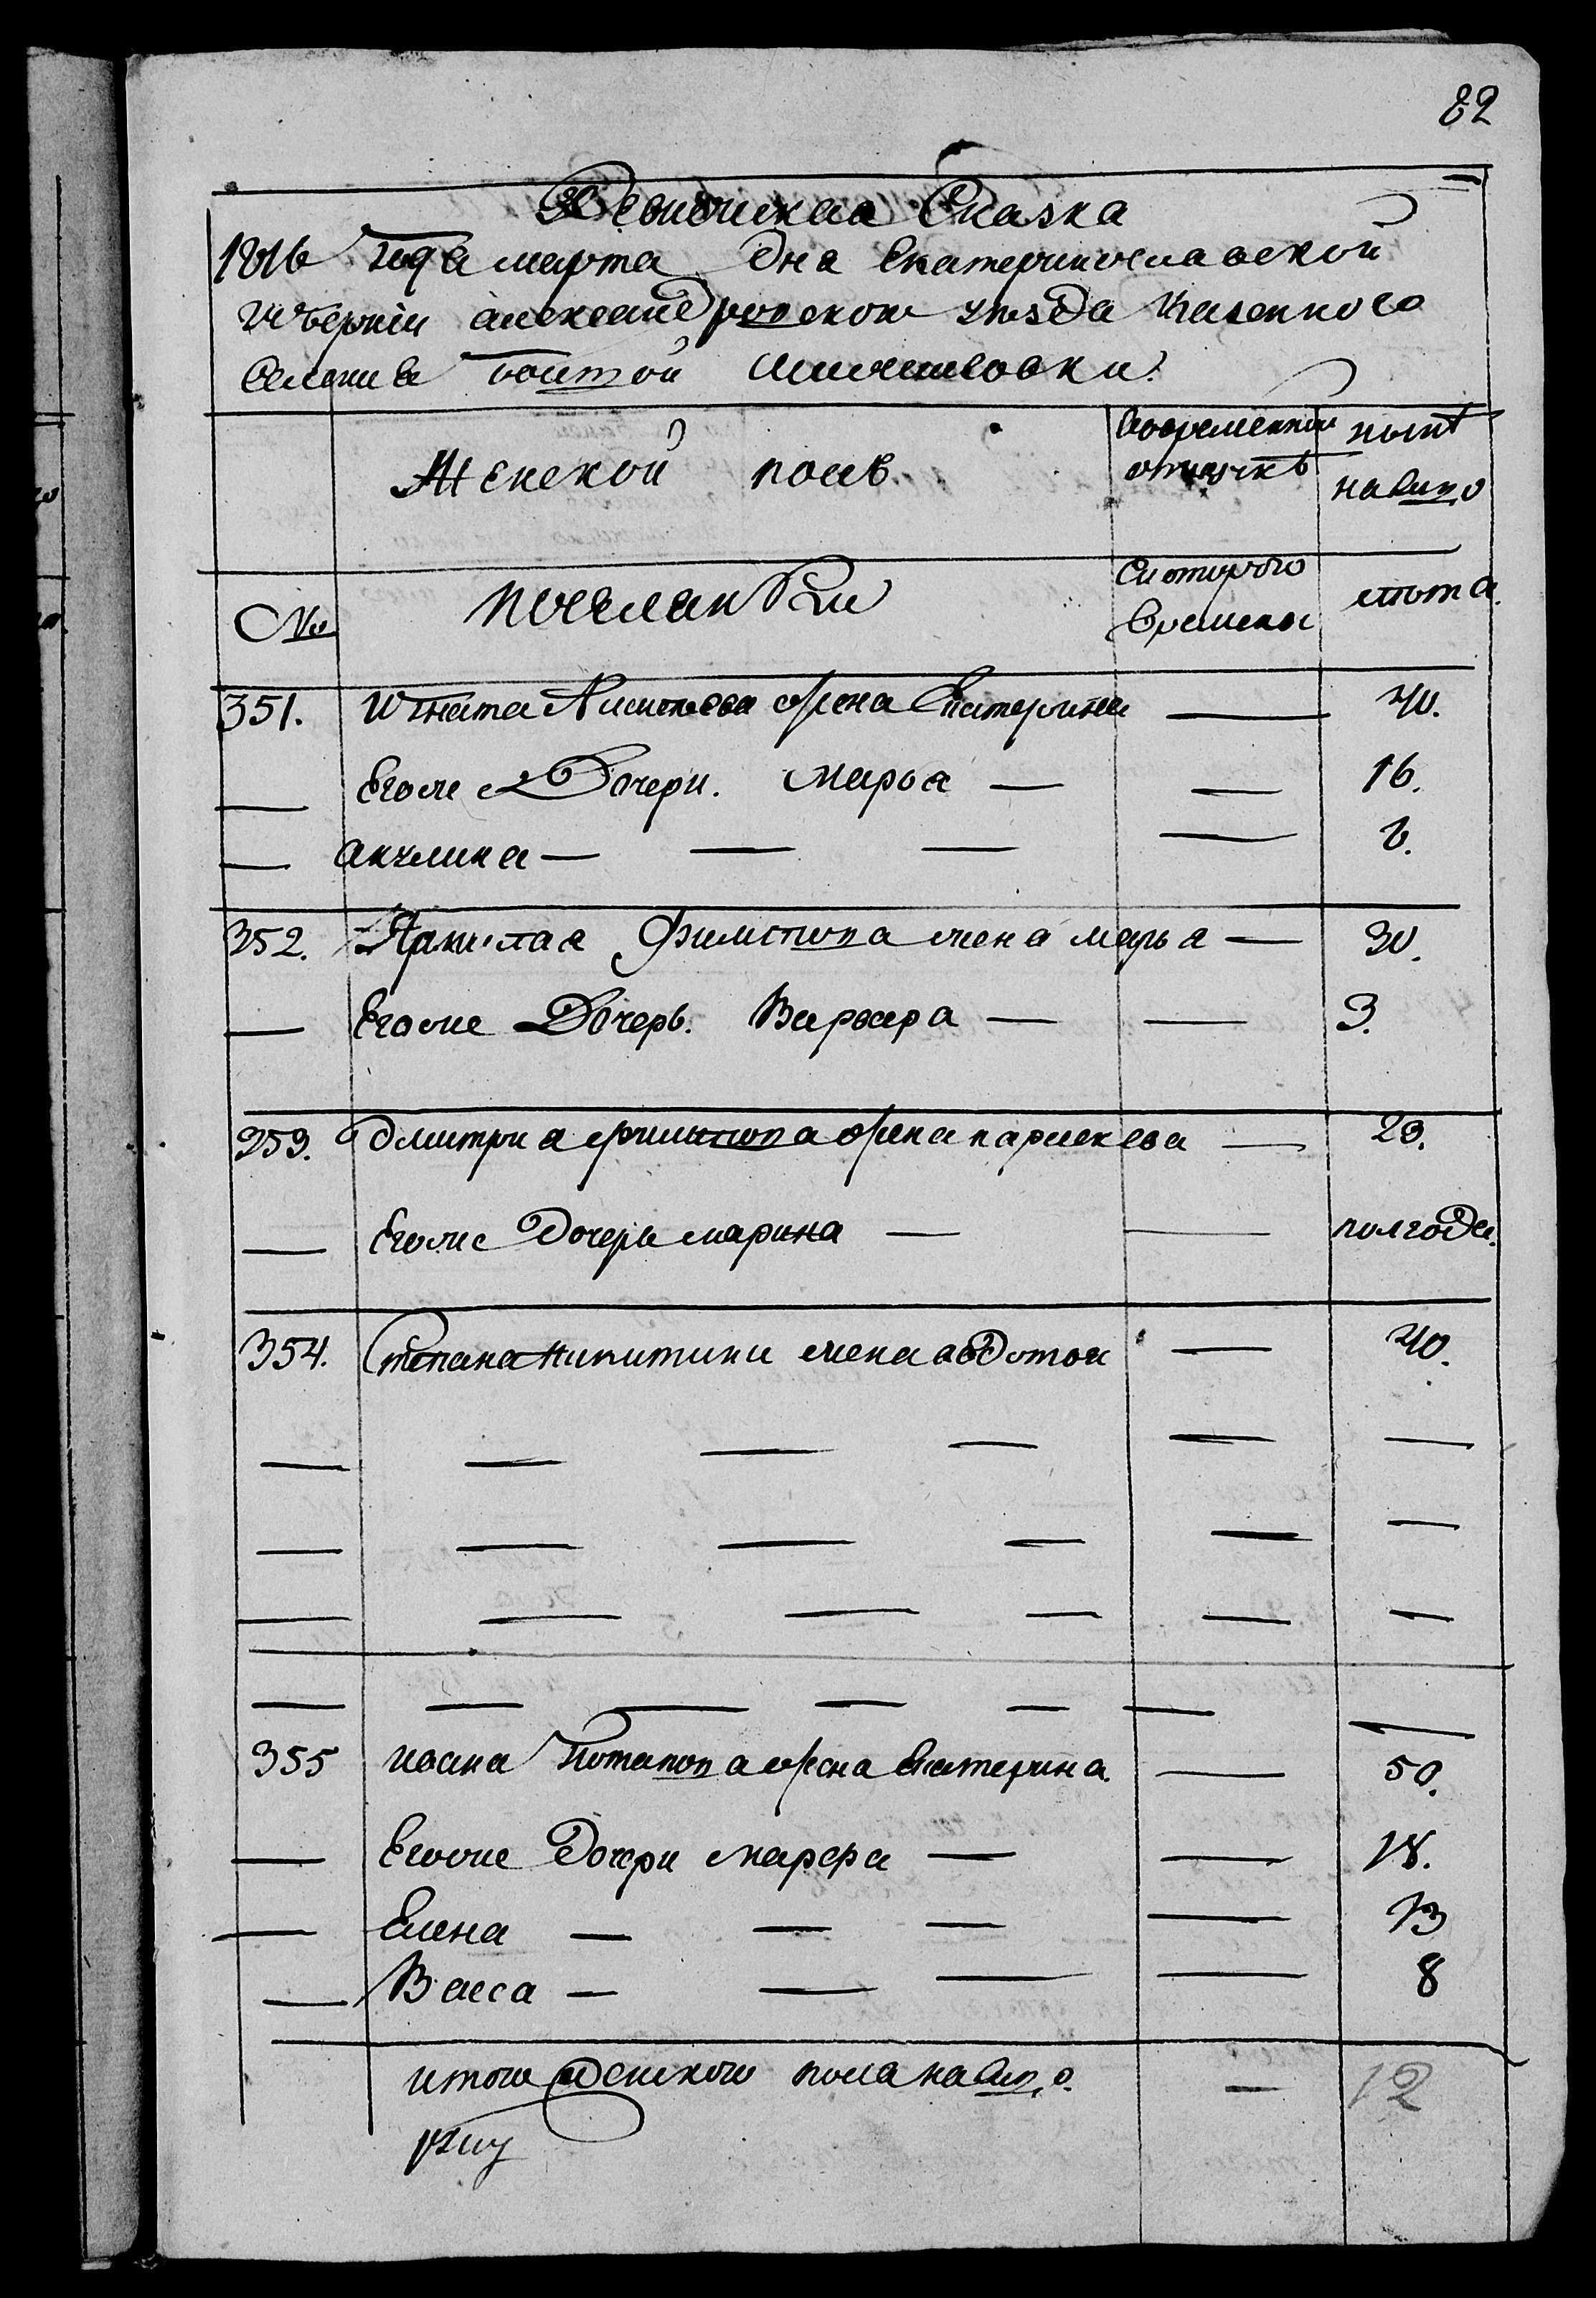 82
Ревизская Сказка
1816 года марта дня Екатеринославской
губернии александровского уезда казенного
селения
Женской пол
Во временной отлучкѣ
нынѣ налицо
№
поселянки
С которого времени
лѣта
351. Игната жена Екатерина — 40.
— Егоже Дочери. Марья — — 16.
— акулина — — — — 6.
352. Филипова жена марья — 30.
— Егоже Дочерь. Варвара — — 3.
353. дмитриа филипова жена парасκева — 23.
— Егоже Дочерь марина — — полгода.
354. Степана Никитина жена авдотья — 40.
— — — — — —
— — — — — —
— — — — — —
— — — — — — —
355 ивана Потапова жена Екатерина. — 50.
— Егоже Дочери марфа — — 18.
— Елена — — — — 13
— Васса — — — — 8
итого женского пола налицо. — 12